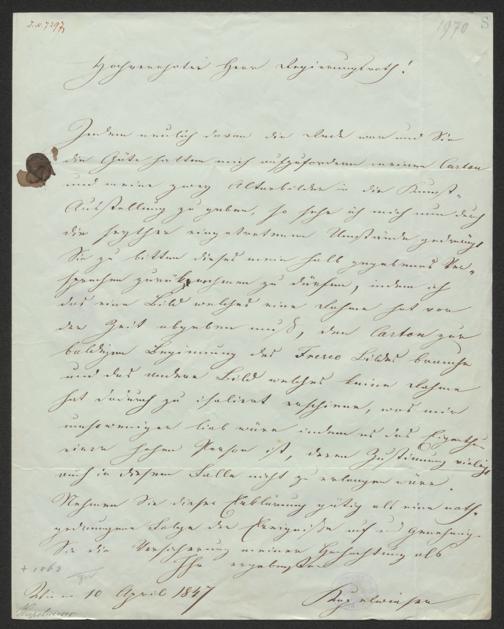 I.N. 7297
1970
Hochverehrter Herr Regierungsrath!
Indem neulich davon die Rede war und Sie
die Güte hatten mich aufzufordern meinen Carton
und meine zwey Altarbilder in die Kunst-
Ausstellung zu geben, so sehe ich mich nun durch
die seither eingetretenen Umstände gedrängt
Sie zu bitten dieses mein halb gegebenes Ver-
sprechen zurücknehmen zu dürfen, indem ich
das eine Bild welches eine Rahme hat vor
der Zeit abgeben muß, den Carton zur
baldigen Beginnung des Fresco Bildes brauche
und das andere Bild welches keine Rahme
hat dadurch zu isoliert erscheine, was mir
umsoweniger lieb wäre indem es das Eigenthum
einer hohen Person ist, deren Zustimmung vielleicht
auch in diesem Falle nicht zu erlangen wäre.
Nehmen Sie diese Erklärung gütig als eine noth-
gedrungene Folge der Ereigniße auf und genehmigen
Sie die Versicherung meiner Hochachtung als
Ihr ergebenster
Wien 10 April 1847
Kupelwieser